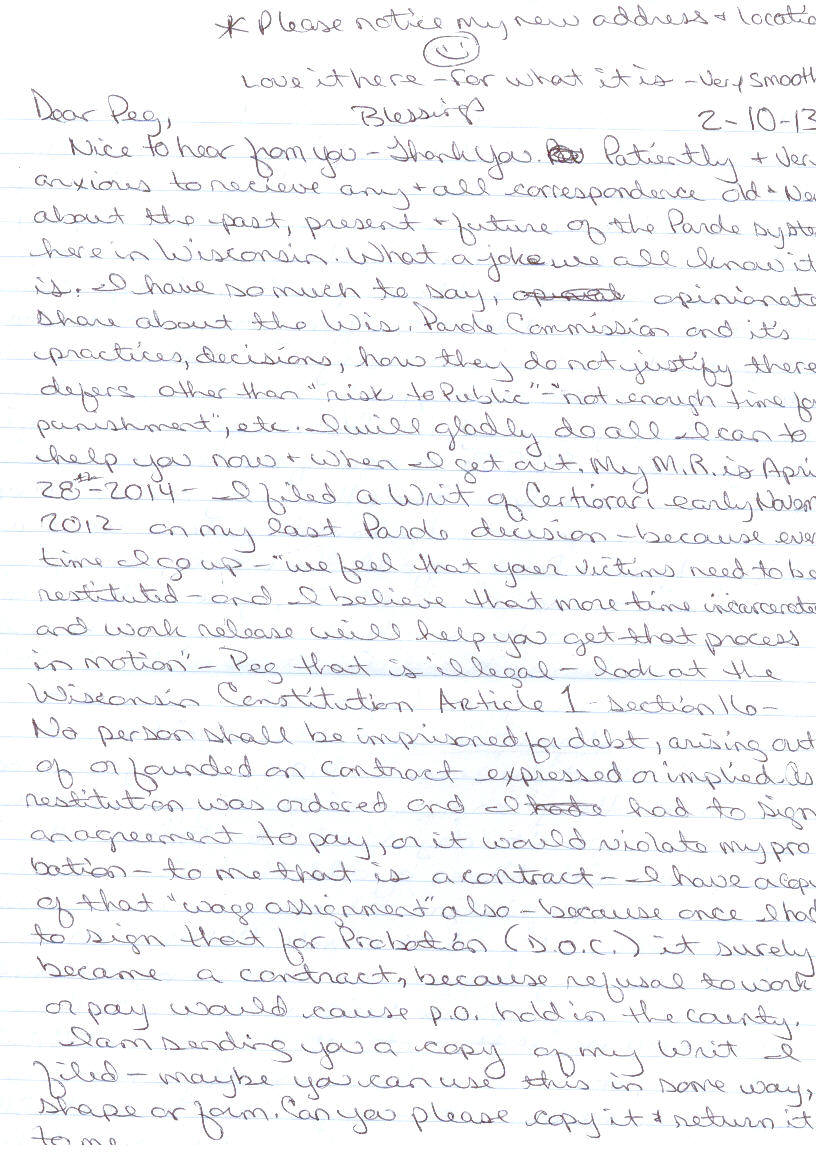 * Please notice my new address + locatio
Love it here - for what it is - Very smooth
Dear Peg, Blessings 2-10-13
Nice to hear from you - Thank you. Patiently + Ver
anxious to recieve any + all correspondence old + Ne
about the past, present + future of the Parole syste
here in Wisconsin. What a joke we all know it
is. I have so much to say, opinionate
share about the Wis. Parole Commission and it's
practices, decisions, how they do not justify there
defers other than "risk to Public" - "not enough time fo
punishment", etc. I will gladly do all I can to
help you now + when I get out. My M.R. is Apri
28th - 2014 - I filed a Writ of Certiorari early Novem
2012 on my last Parole decision - because ever
time I go up - "we feel that your victims need to be
restituted - and I believe that more time incarcerate
and work release will help you get that process
in motion" - Peg that is illegal - look at the
Wisconsin Constitution Article 1 - section 16 -
No person shall be imprisoned for debt, arising out
of or founded on contract expressed or implied.
restitution was ordered and I had to sign
an agreement to pay, or it would violate my pro
bation - to me that is a contract - I have a copy
of that "wage assignment" also - because once I had
to sign that for Probation (D.O.C.) it surely
became a contract, because refusal to work
or pay would cause p.o. hold in the county.
I am sending you a copy of my Writ I
filed - maybe you can use this in some way,
shape or form. Can you please copy it + return it
to me